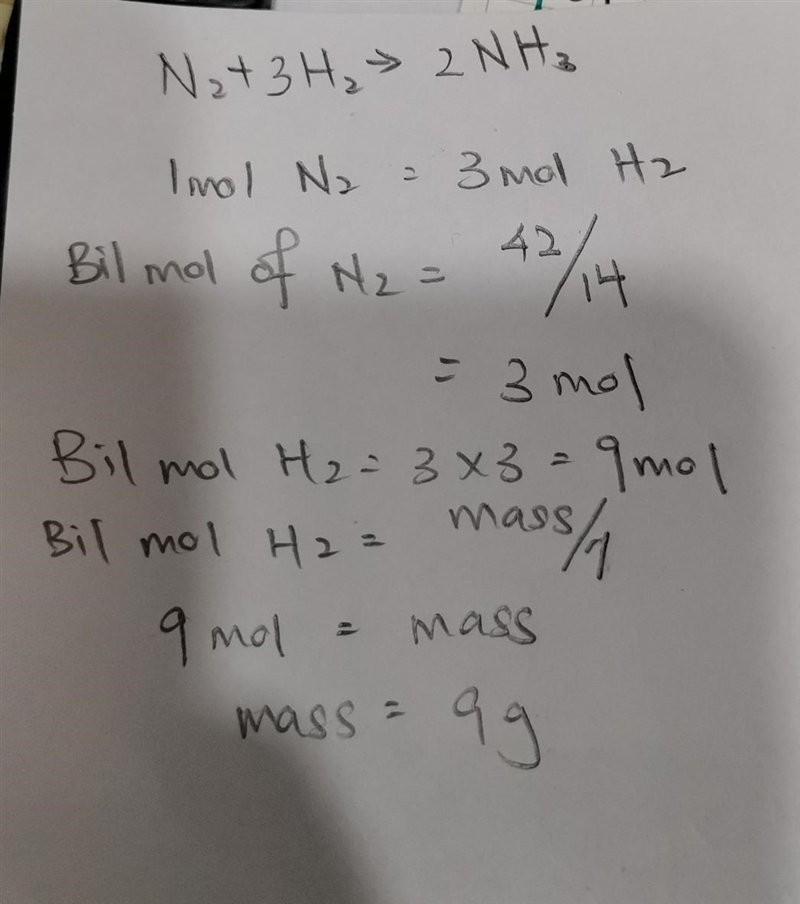 N₂+3H₂→ 2NH₃
1mol N₂ = 3mol H₂
Bil mol of N₂ = 42/14
= 3 mol
Bil mol H₂ = 3×3 = 9mol
Bil mol H₂ = mass/1
9 mol = mass
mass = 9g